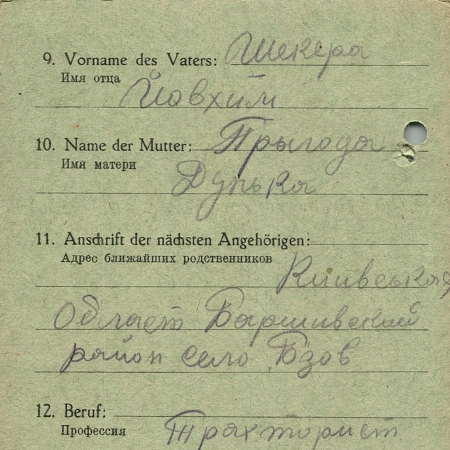 9. Vorname des Vaters: Шекера
Имя отца
Йовхим
10. Name der Mutter: Прыгода
Имя матери
Дунька
11. Anschrift der nächsten Angehörigen:
Адрес ближайших родственников
Киивськая
Област Баришивский
район село Бзов
12. Beruf:
Профессия Трахторист